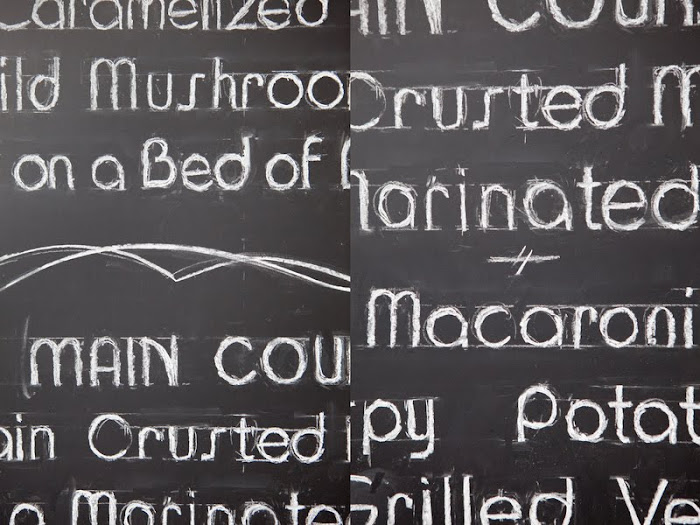 Caramelized
ild Mushroo
on a Bed of
MAIN COU
ain Crusted
a Marinate
AIN COUR
Crusted M
arinated
Macaroni
py Potat
Grilled Ve